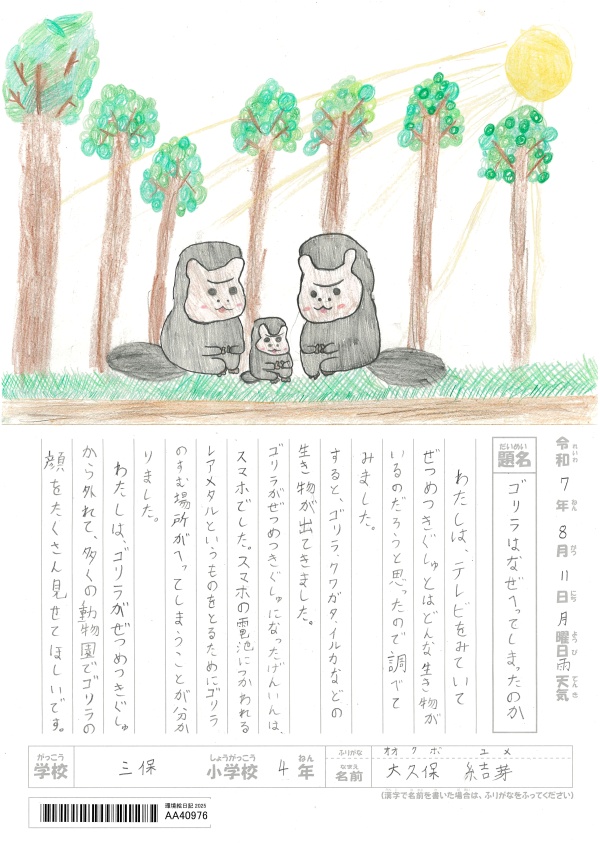 令和7年8月11日月曜日雨天気
れいわ ねん がつ にち ようび てんき
だいめい
題名 ゴリラはなぜへってしまったのか
わたしは、テレビをみていて
ぜつめつきぐしゅとはどんな生き物が
いるのだろうと思ったので調べて
みました。
すると、ゴリラ・クワガタ・イルカなどの
生き物が出てきました。
ゴリラがぜつめつきぐしゅになったげんいんは、
スマホでした。スマホの電池につかわれる
レアメタルというものをとるためにゴリラ
のすむ場所がへってしまうことが分か
りました。
わたしは、ゴリラがぜつめつきぐしゅ
から外れて、多くの動物園でゴリラの
顔をたくさん見せてほしいです。
がっこう しょうがっこう ねん
学校 三保 小学校 4年
ふりがな オオクボ ユメ
なまえ
名前 大久保 結芽
(漢字で名前を書いた場合は、ふりがなをふってください)
環境絵日記 2025
AA40976